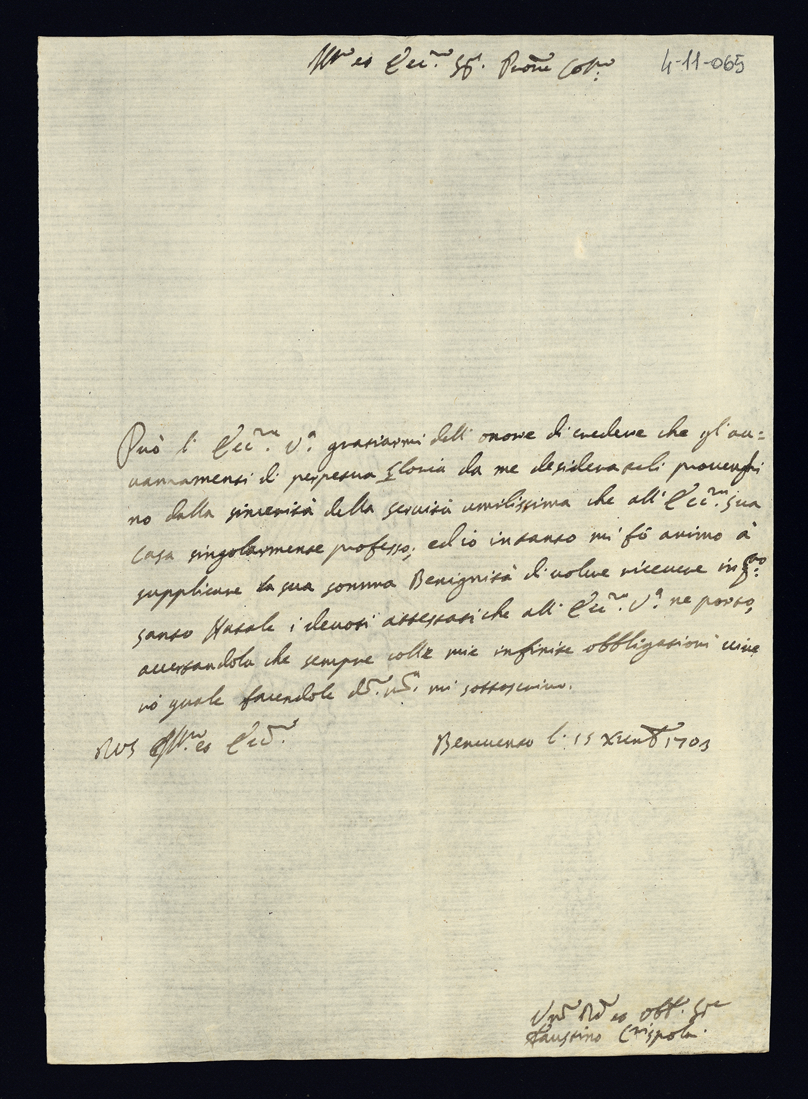 Ill.mo et Ecc.mo Sig.r Prone Col.mo
4-11-065
Può l'Ecc.ma V.a gratiarmi dell'onore di credere che gl'au=
uanzamenti di perpetua Gloria da me desiderateli prouenghi
no dalla sincerità della seruitù umilissima che all'Ecc.ma sua
Casa singolarmente professo; ed io intanto mi fò animo à
supplicare la sua somma Benignità di uolere riceuere in q.sto
santo Natale i deuoti attestati che all'Ecc.za V.a ne porto,
accertandola che sempre colle mie infinite obbligationi uiue
rò quale facendole mi sottoscriuo.
Ill.mo et Ecc.mo
Beneuento li 15 Xmb 1703
et obb.
Faustino Crispolti